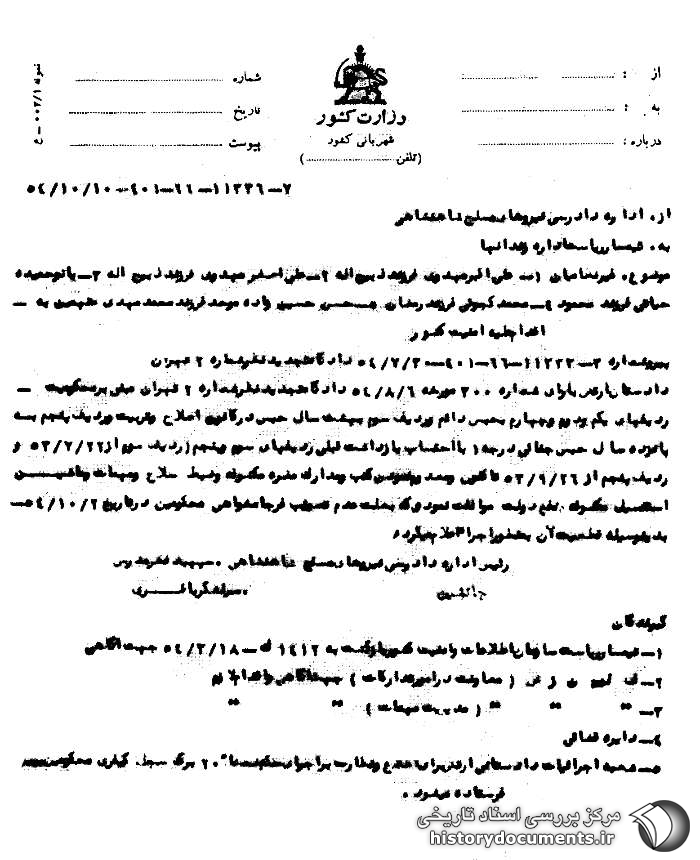 نمونه ۰۰۲/۱ - ع
از :
به :
درباره :
وزارت کشور
شهربانی کشور
(تلفن )
شماره
تاریخ
پیوست
۷ـ ۱۱۲۳۶ـ ۶۶ـ ۴۰۱ـ ۵۴/۱۰/۱۰
از. اداره دادرسی نیروهای مسلح شاهنشاهی
به. تیمسار ریاست اداره زندانها
موضوع. غیرنظامیان ۱ـ علی اکبر مهدوی فرزند ذبیح اله ۲ـ علی اصغر مهدوی فرزند ذبیح اله ۳ـ
حیاتی فرزند محمود ۴ـ محمد کچوئی فرزند رمضان ۵ـ حسن حسین زاده موحد فرزند محمد مهدی متهمین به ـ
اقدام علیه امنیت کشور
پیرو شماره ۳ـ ۱۱۲۳۳ـ ۶۶ـ ۴۰۱ـ ۵۴/۷/۳۰ دادگاه تجدید نظر شماره ۲ تهران
دادستان ارتش با رای شماره ۳۰۰ مورخه ۵۴/۸/۶ دادگاه تجدید نظر شماره ۲ تهران مبنی بر محکومیت ـ
ردیفهای یکم و دوم و چهارم بحبس دائم و ردیف سوم به بیست سال حبس در کانون اصلاح و تربیت و ردیف پنجم به
پانزده سال حبس جنائی درجه ۱ با احتساب بازداشت قبلی ردیفهای سوم و پنجم (ردیف سوم از ۵۳/۷/۲۲ و
ردیف پنجم از ۵۳/۹/۲۶ تاکنون و کتب و مدارک مضره مکشوفه و ضبط سلاح و مهمات و
مکشوفه بنفع دولت موافقت نموده که بعلت عدم تصویب فرجامخواهی محکومین در تاریخ ۵۴/۱۰/۲ـ
بدینوسیله قطعیت آن بمنظور اجرا اعلام میگردد
رئیس اداره دادرسی نیروهای مسلح شاهنشاهی . سپهبد
جانشین . سرلشگر
گیرندگان
۱ـ تیمسار ریاست سازمان اطلاعات و امنیت کشور بازگشت به ۱۴۱۲ ک ـ ۵۴/۳/۱۸ جهت آگاهی
۲ـ ( معاونت در امور تدارکات ) جهت آگاهی و اقدام لازم
۳ـ " " " ( مدیریت مهمات ) " "
۴ـ دایره قضائی
۵ـ شعبه اجرائیات دادستانی ارتش برای اطلاع و نظارت بر اجرای حکم ضمنا ۲۰ برگ سجل کیفری محکومین
فرستاده میشود .
مرکز بررسی اسناد تاریخی
historydocuments.ir